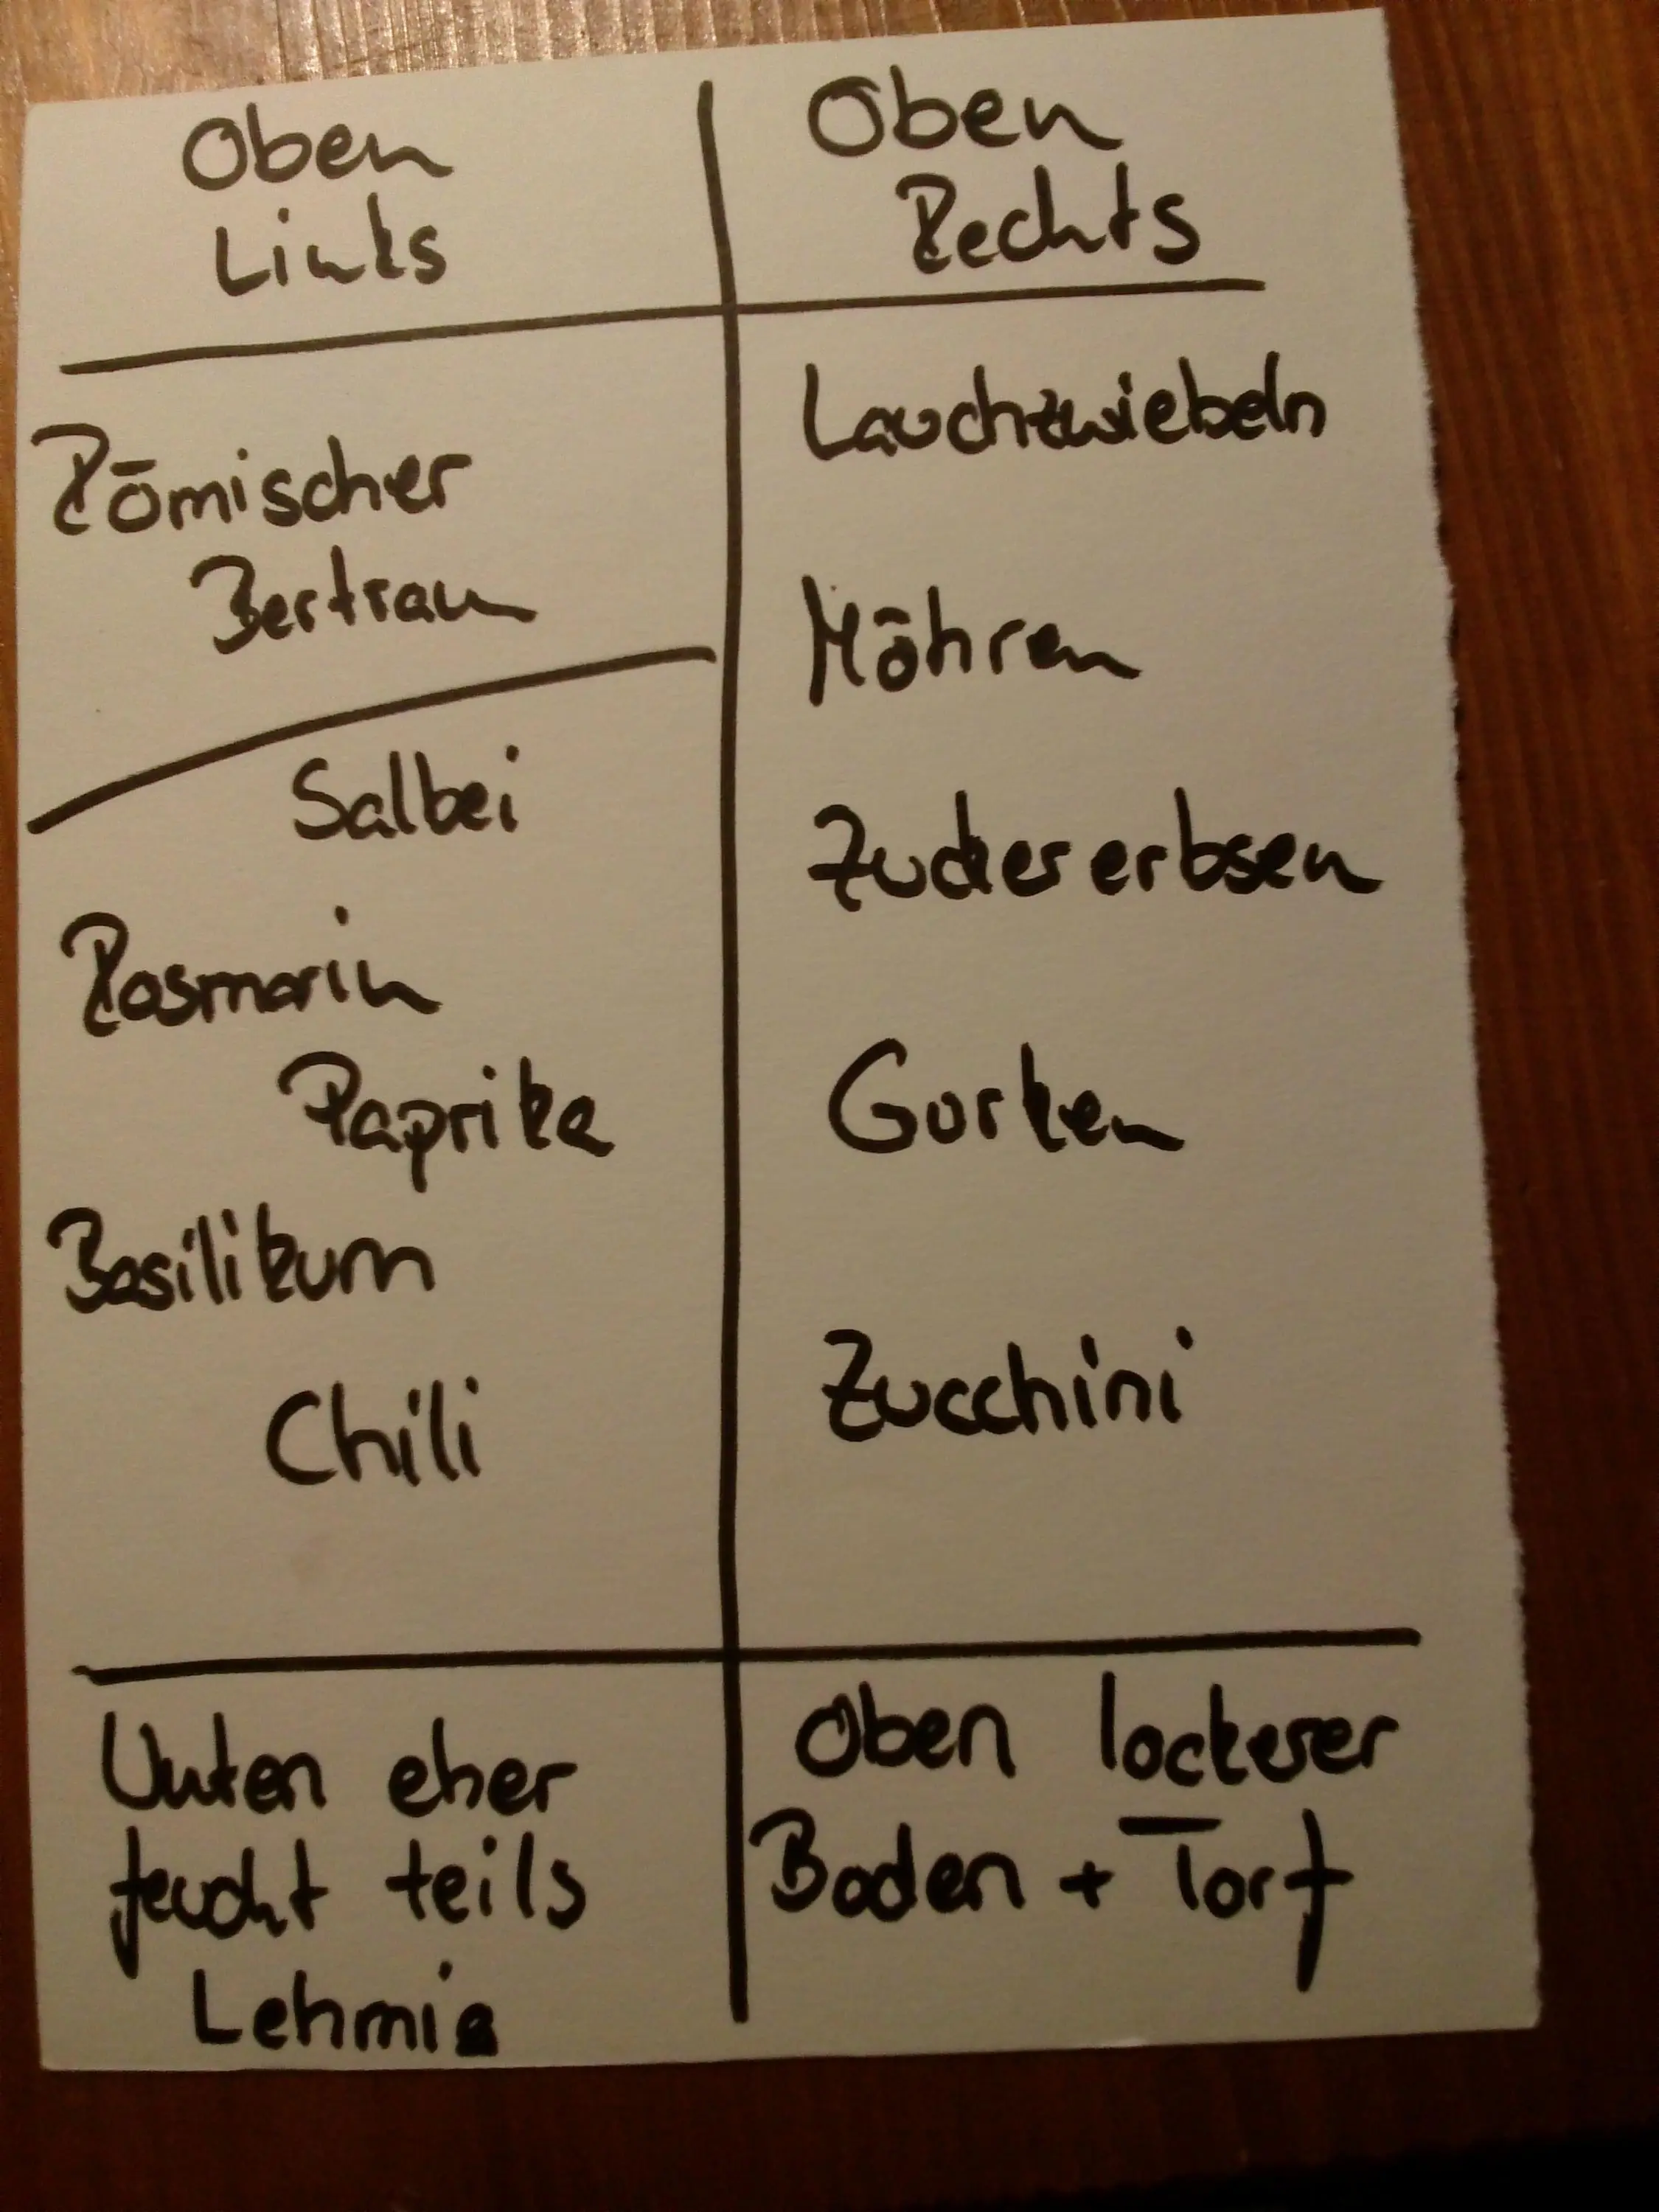 Oben
Links
Römischer
Bertram
Salbei
Rosmarin
Paprika
Basilikum
Chili
Unten eher
feucht teils
Lehmig
Oben
Rechts
Lauchzwiebeln
Möhren
Zuckererbsen
Gurken
Zucchini
Oben lockerer
Boden + Torf